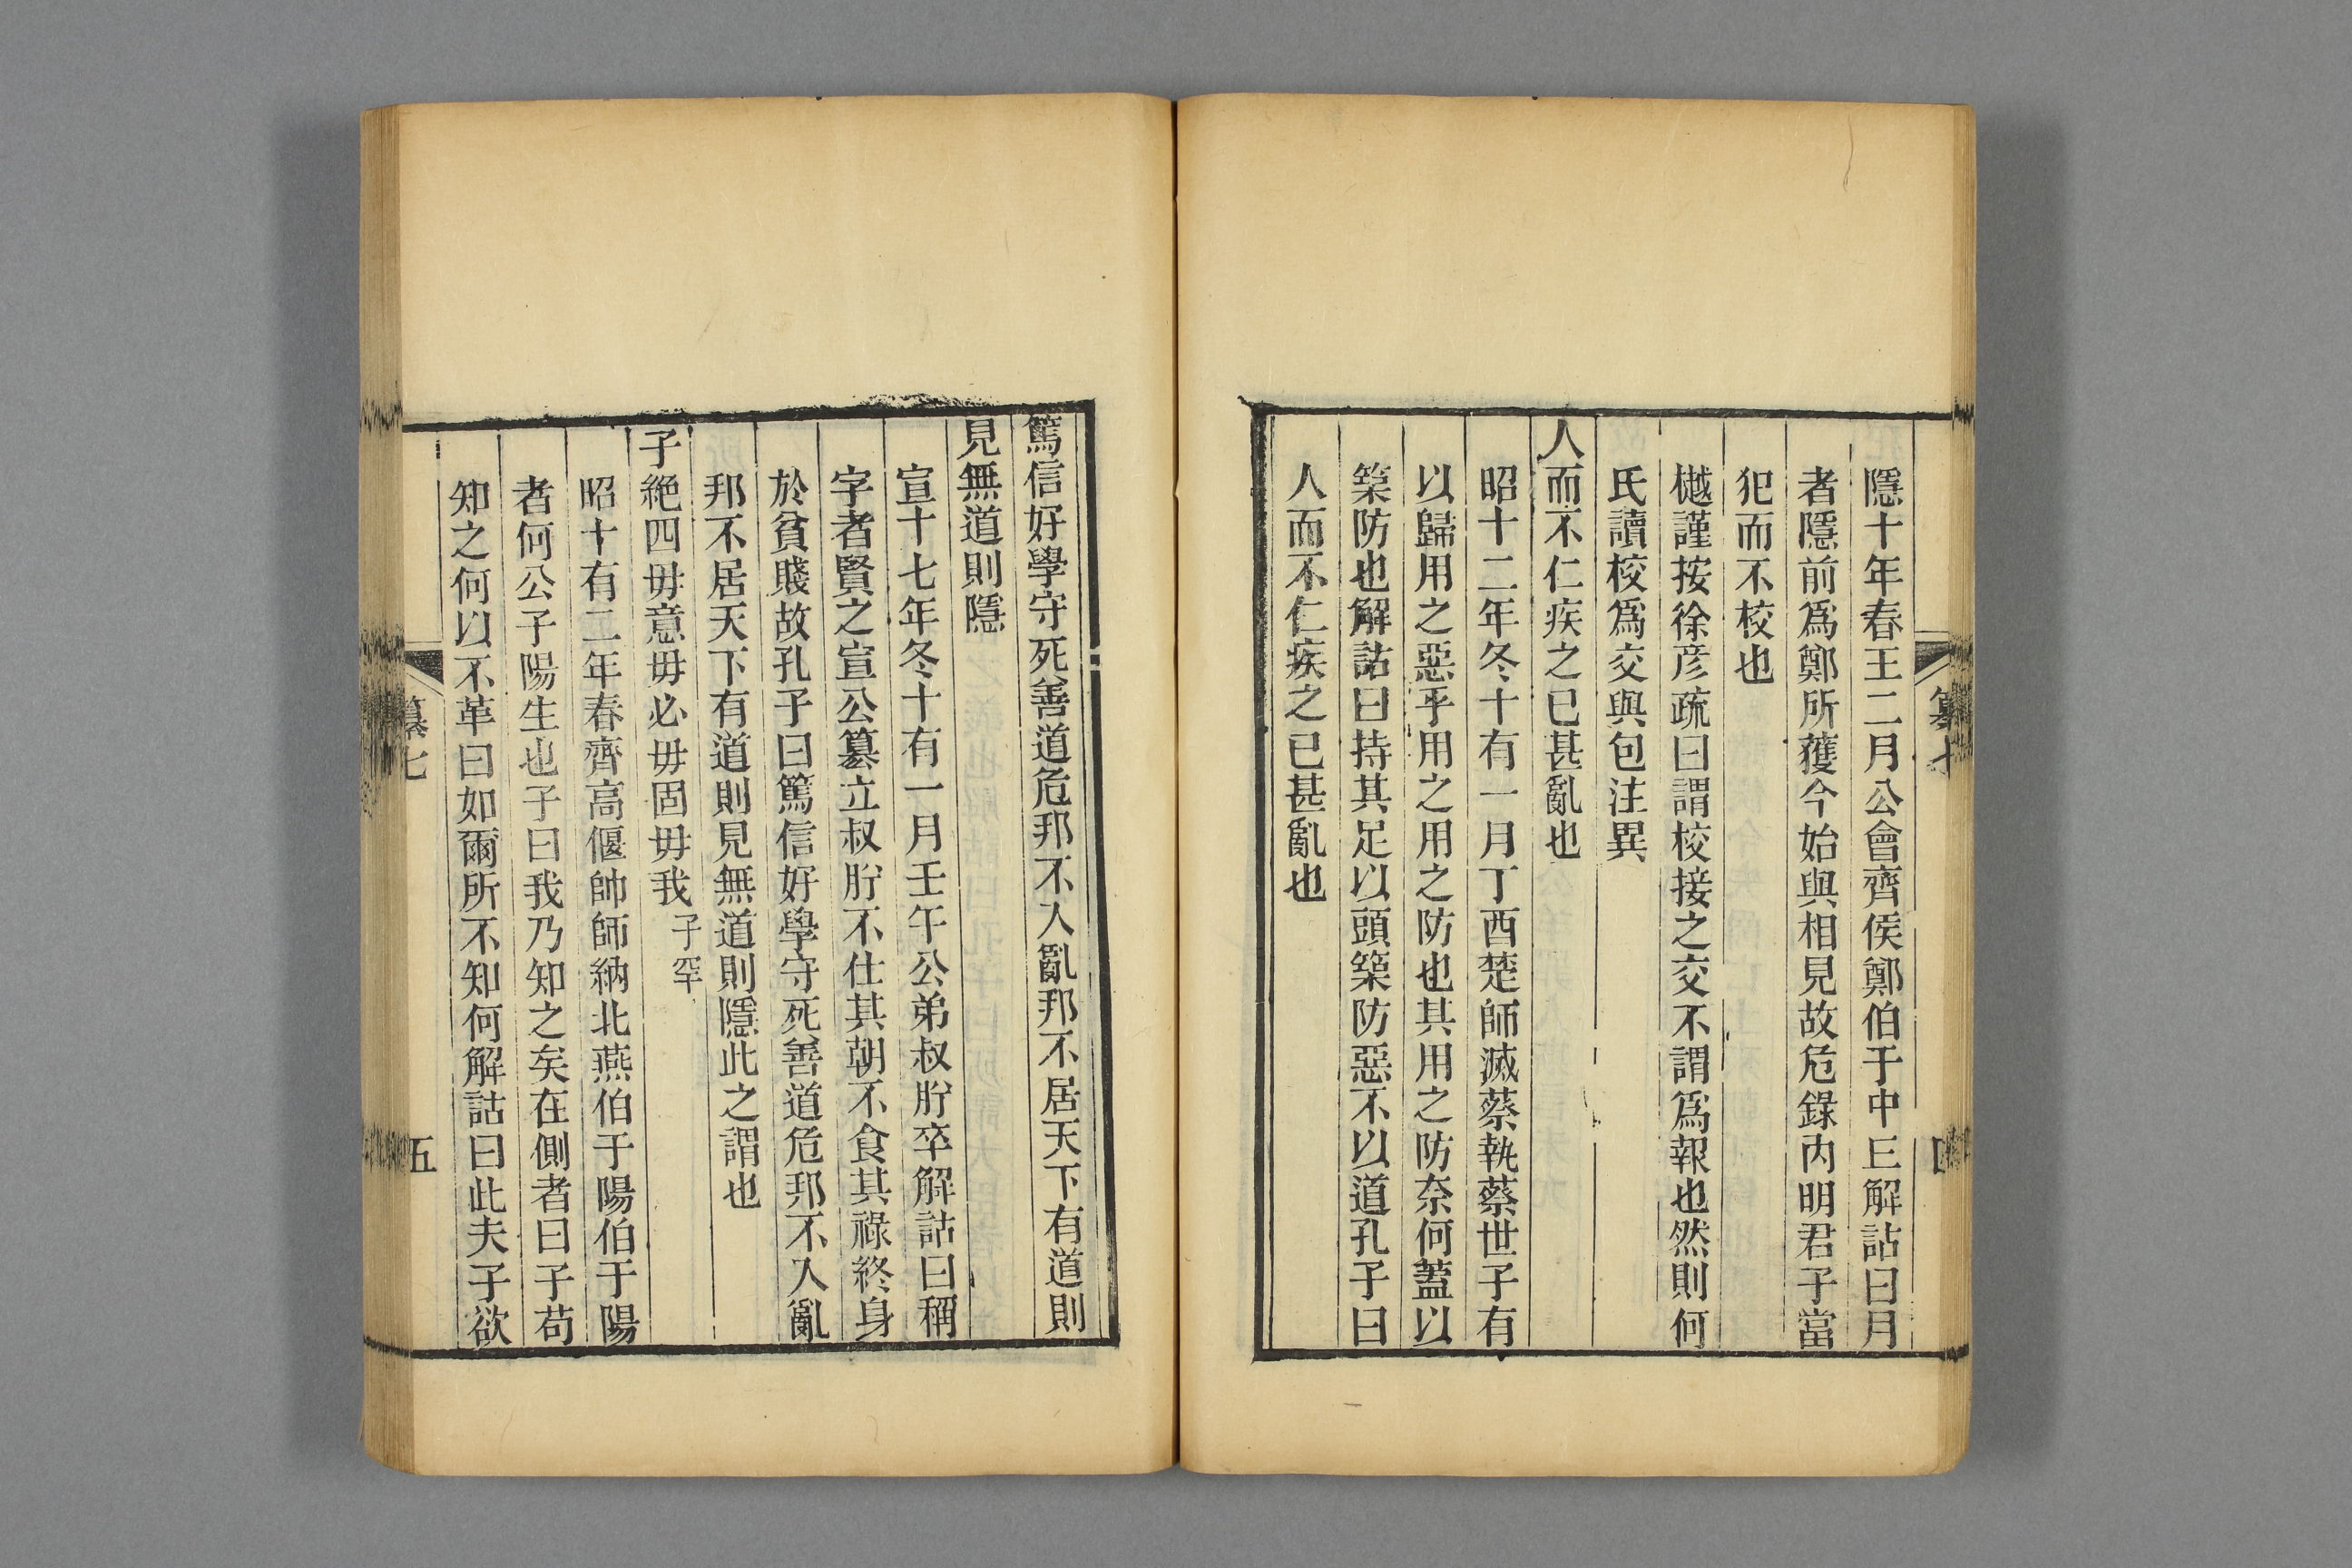 隱十年春王二月公會齊侯鄭伯于中丘解詁曰月
者隱前爲鄭所獲今始與相見故危錄內明君子當
犯而不校也
樾謹按徐彦疏曰謂校接之交不謂爲報也然則何
氏讀校爲交與包注異
人而不仁疾之已甚亂也
昭十二年冬十有一月丁酉楚師滅蔡執蔡世子有
以歸用之惡乎用之用之防也其用之防奈何蓋以
築防也解詁曰持其足以頭築防惡不以道孔子曰
人而不仁疾之已甚亂也
纂七
篤信好學守死善道危邦不入亂邦不居天下有道則
見無道則隱
宣十七年冬十有一月壬午公弟叔肸卒解詁曰稱
字者賢之宣公篡立叔肸不仕其朝不食其祿終身
於貧賤故孔子曰篤信好學守死善道危邦不入亂
邦不居天下有道則見無道則隱此之謂也
子絕四毋意毋必毋固毋我子罕
昭十有二年春齊高偃帥師納北燕伯于陽伯于陽
者何公子陽生也子曰我乃知之矣在側者曰子苟
知之何以不革曰如爾所不知何解詁曰此夫子欲
纂七
五